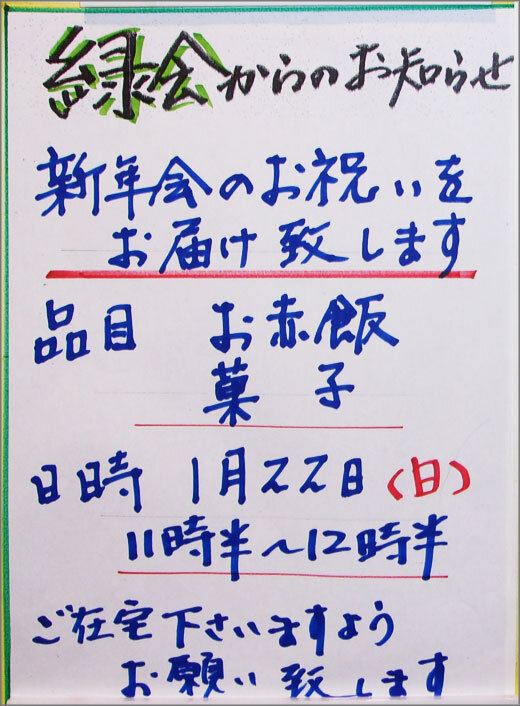 緑会からのお知らせ
新年会のお祝いを
お届け致します
品目 お赤飯
菓子
日時 1月22日(日)
11時半~12時半
ご在宅下さいますよう
お願い致します